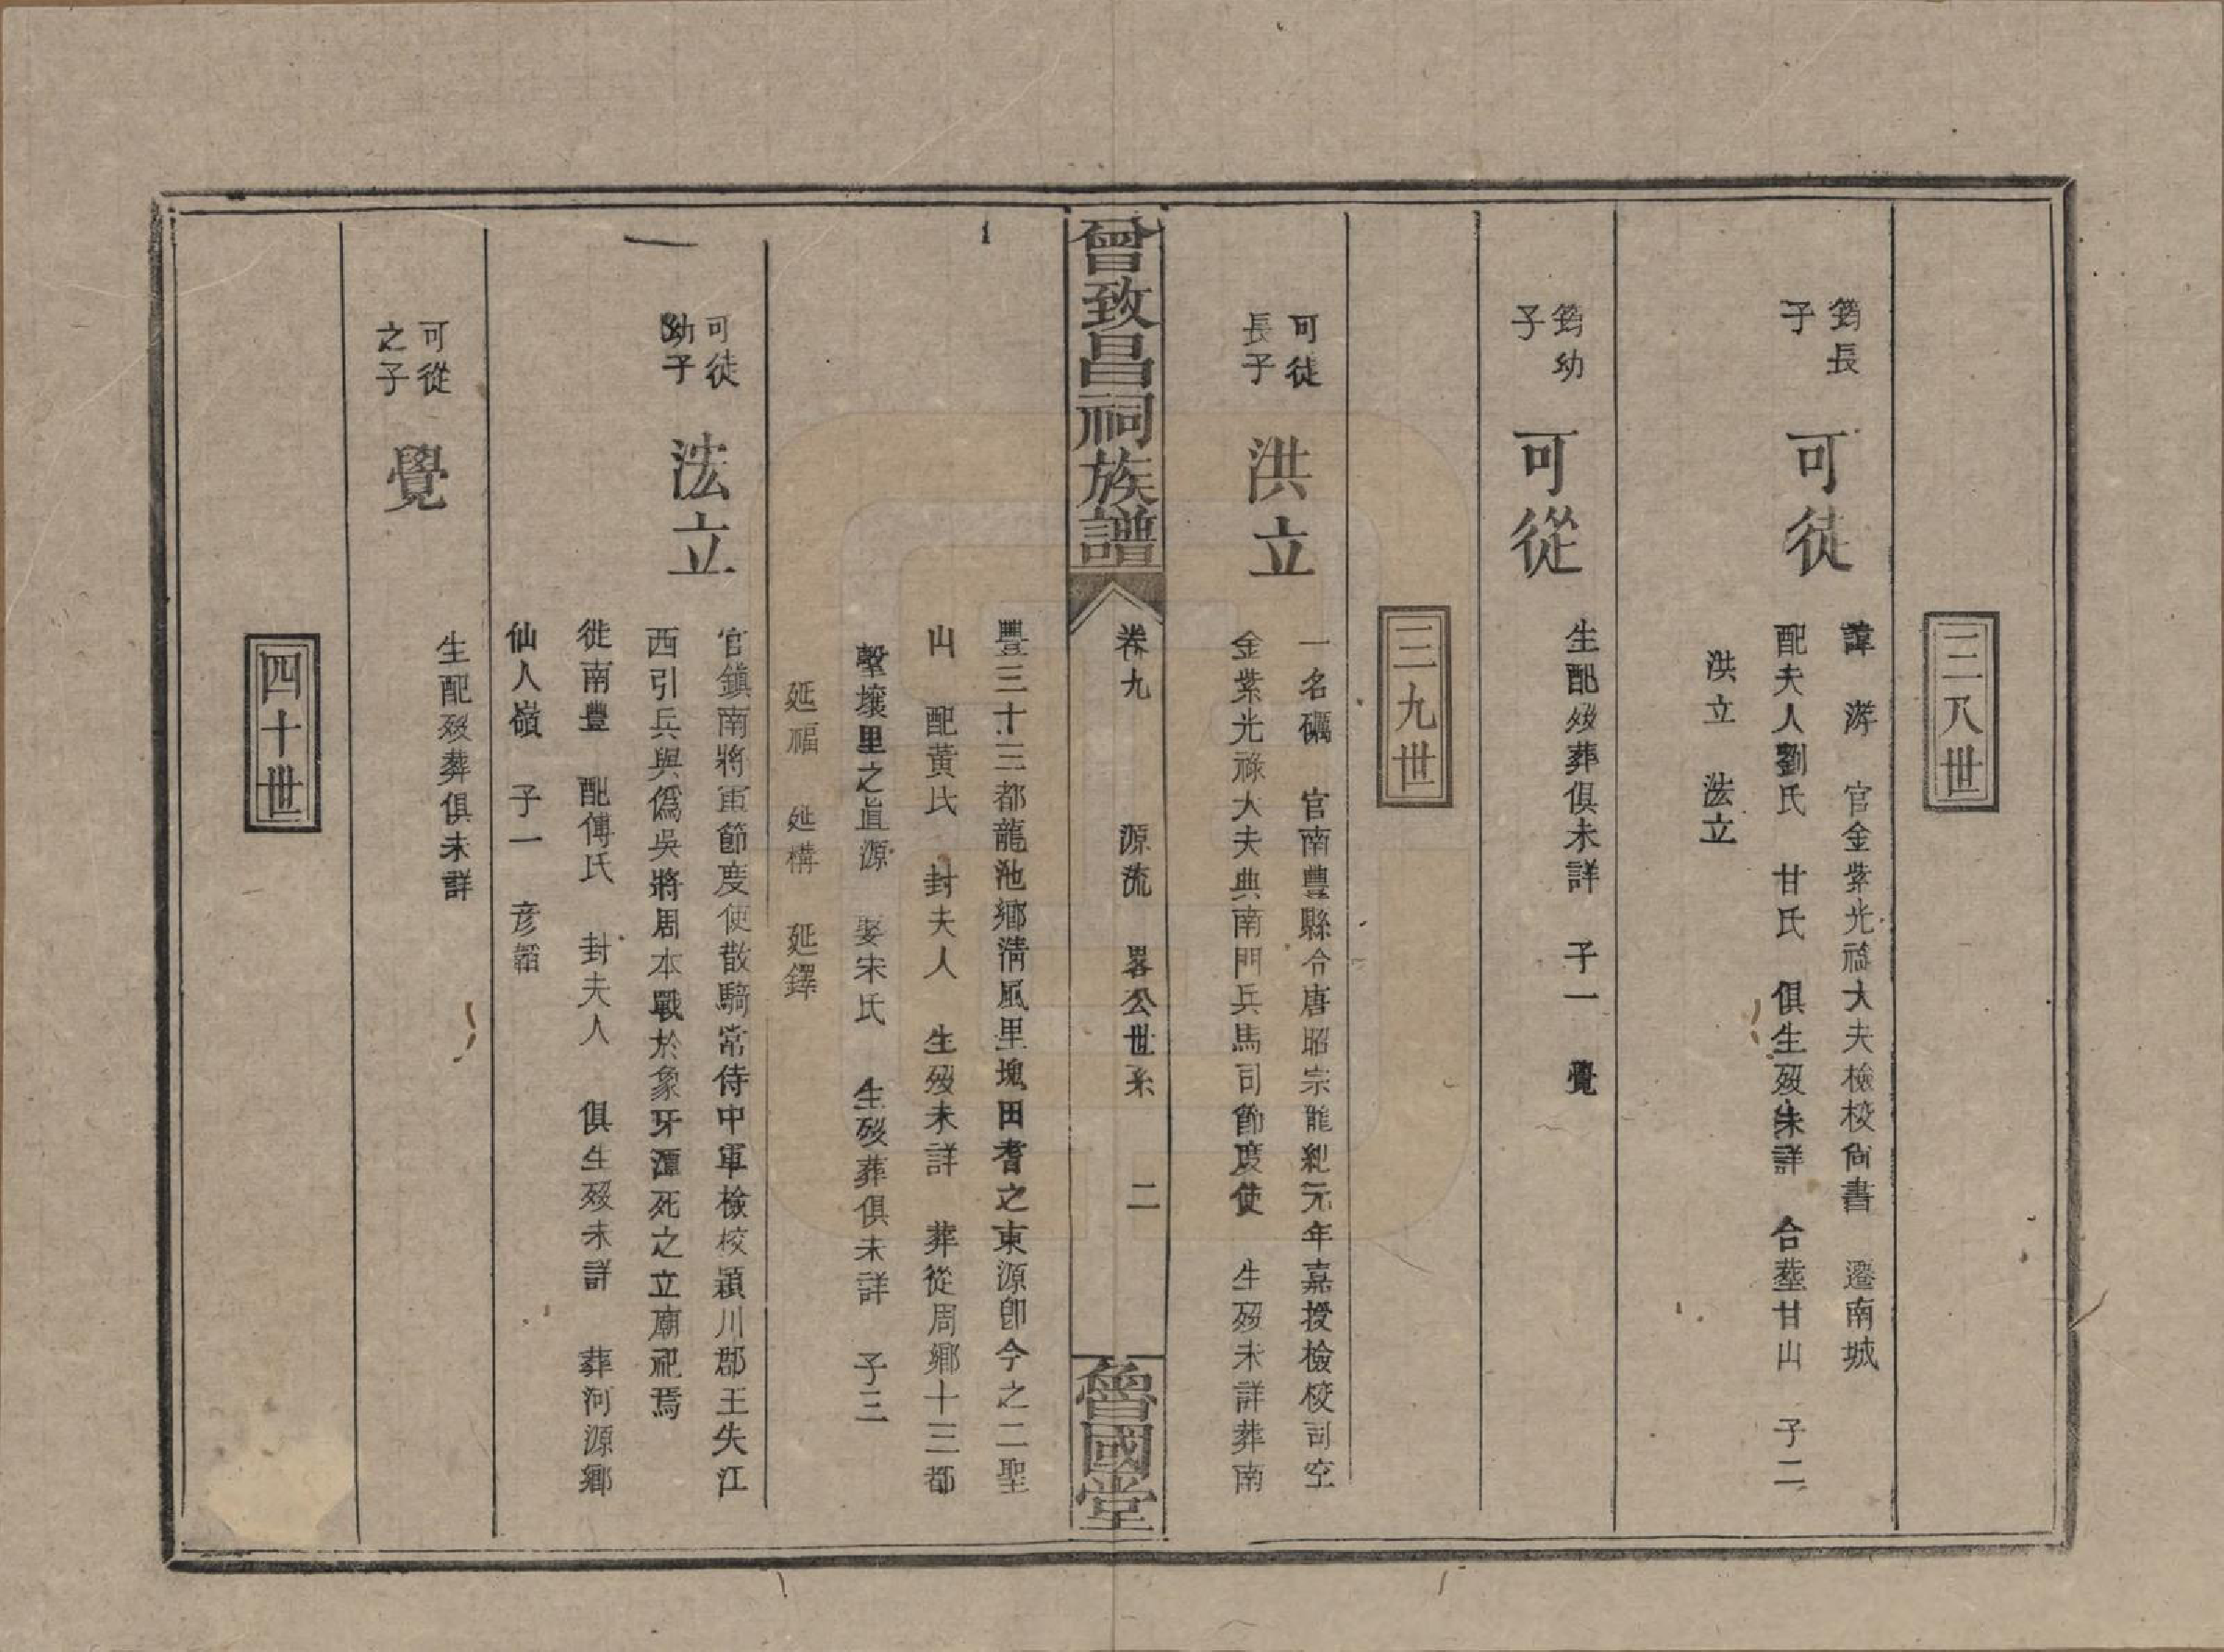 三八世
筠長
子
可徒
諱㳺　官金紫光祿大夫檢校尚書　遷南城
配夫人劉氏　甘氏　俱生歿未詳　合塟甘山　子二
洪立　法立
筠幼
子
可從
生配歿葬俱未詳　子一　覺
三九世
可徒
長子
洪立
一名礪　官南豐縣令唐昭宗龍紀元年嘉授檢校司空
金紫光祿大夫典南門兵馬司節度使　生歿未詳葬南
曾致昌祠族譜
卷九　源流　畧公世系　二
魯國堂
豐三十三都龍池鄉清風里塊田耆之東源卽今之二聖
山　配黃氏　封夫人　生歿未詳　葬從周鄉十三都
擊壤里之直源　娶朱氏　生歿葬俱未詳　子三
延福　延構　延鐸
可徒
幼子
法立
官鎮南將軍節度使散騎常侍中軍檢校潁川郡王失江
西引兵與僞吳將周本戰於象牙潭死之立廟祀焉
徙南豐　配傅氏　封夫人　俱生歿未詳　葬河源鄉
仙人嶺　子一　彥韜
可從
之子
覺
生配歿葬俱未詳
四十世